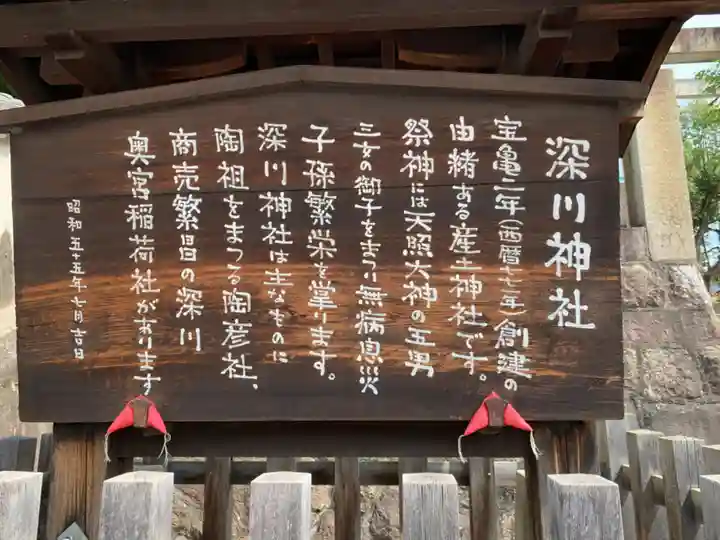 深川神社
宝亀二年（西暦七七一年）創建の
由緒ある産土神社です。
祭神には天照大神の五男
三女の御子をまつり無病息災
子孫繁栄を掌ります。
深川神社は主なものに
陶祖をまつる陶彦社、
商売繁昌の深川
奥宮稲荷社があります
昭和五十五年七月吉日